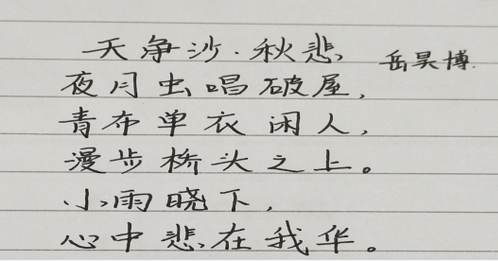 天净沙·秋悲 岳昊博
夜月虫唱破屋，
青布单衣闲人，
漫步桥头之上。
小雨晓下，
心中悲在我华。